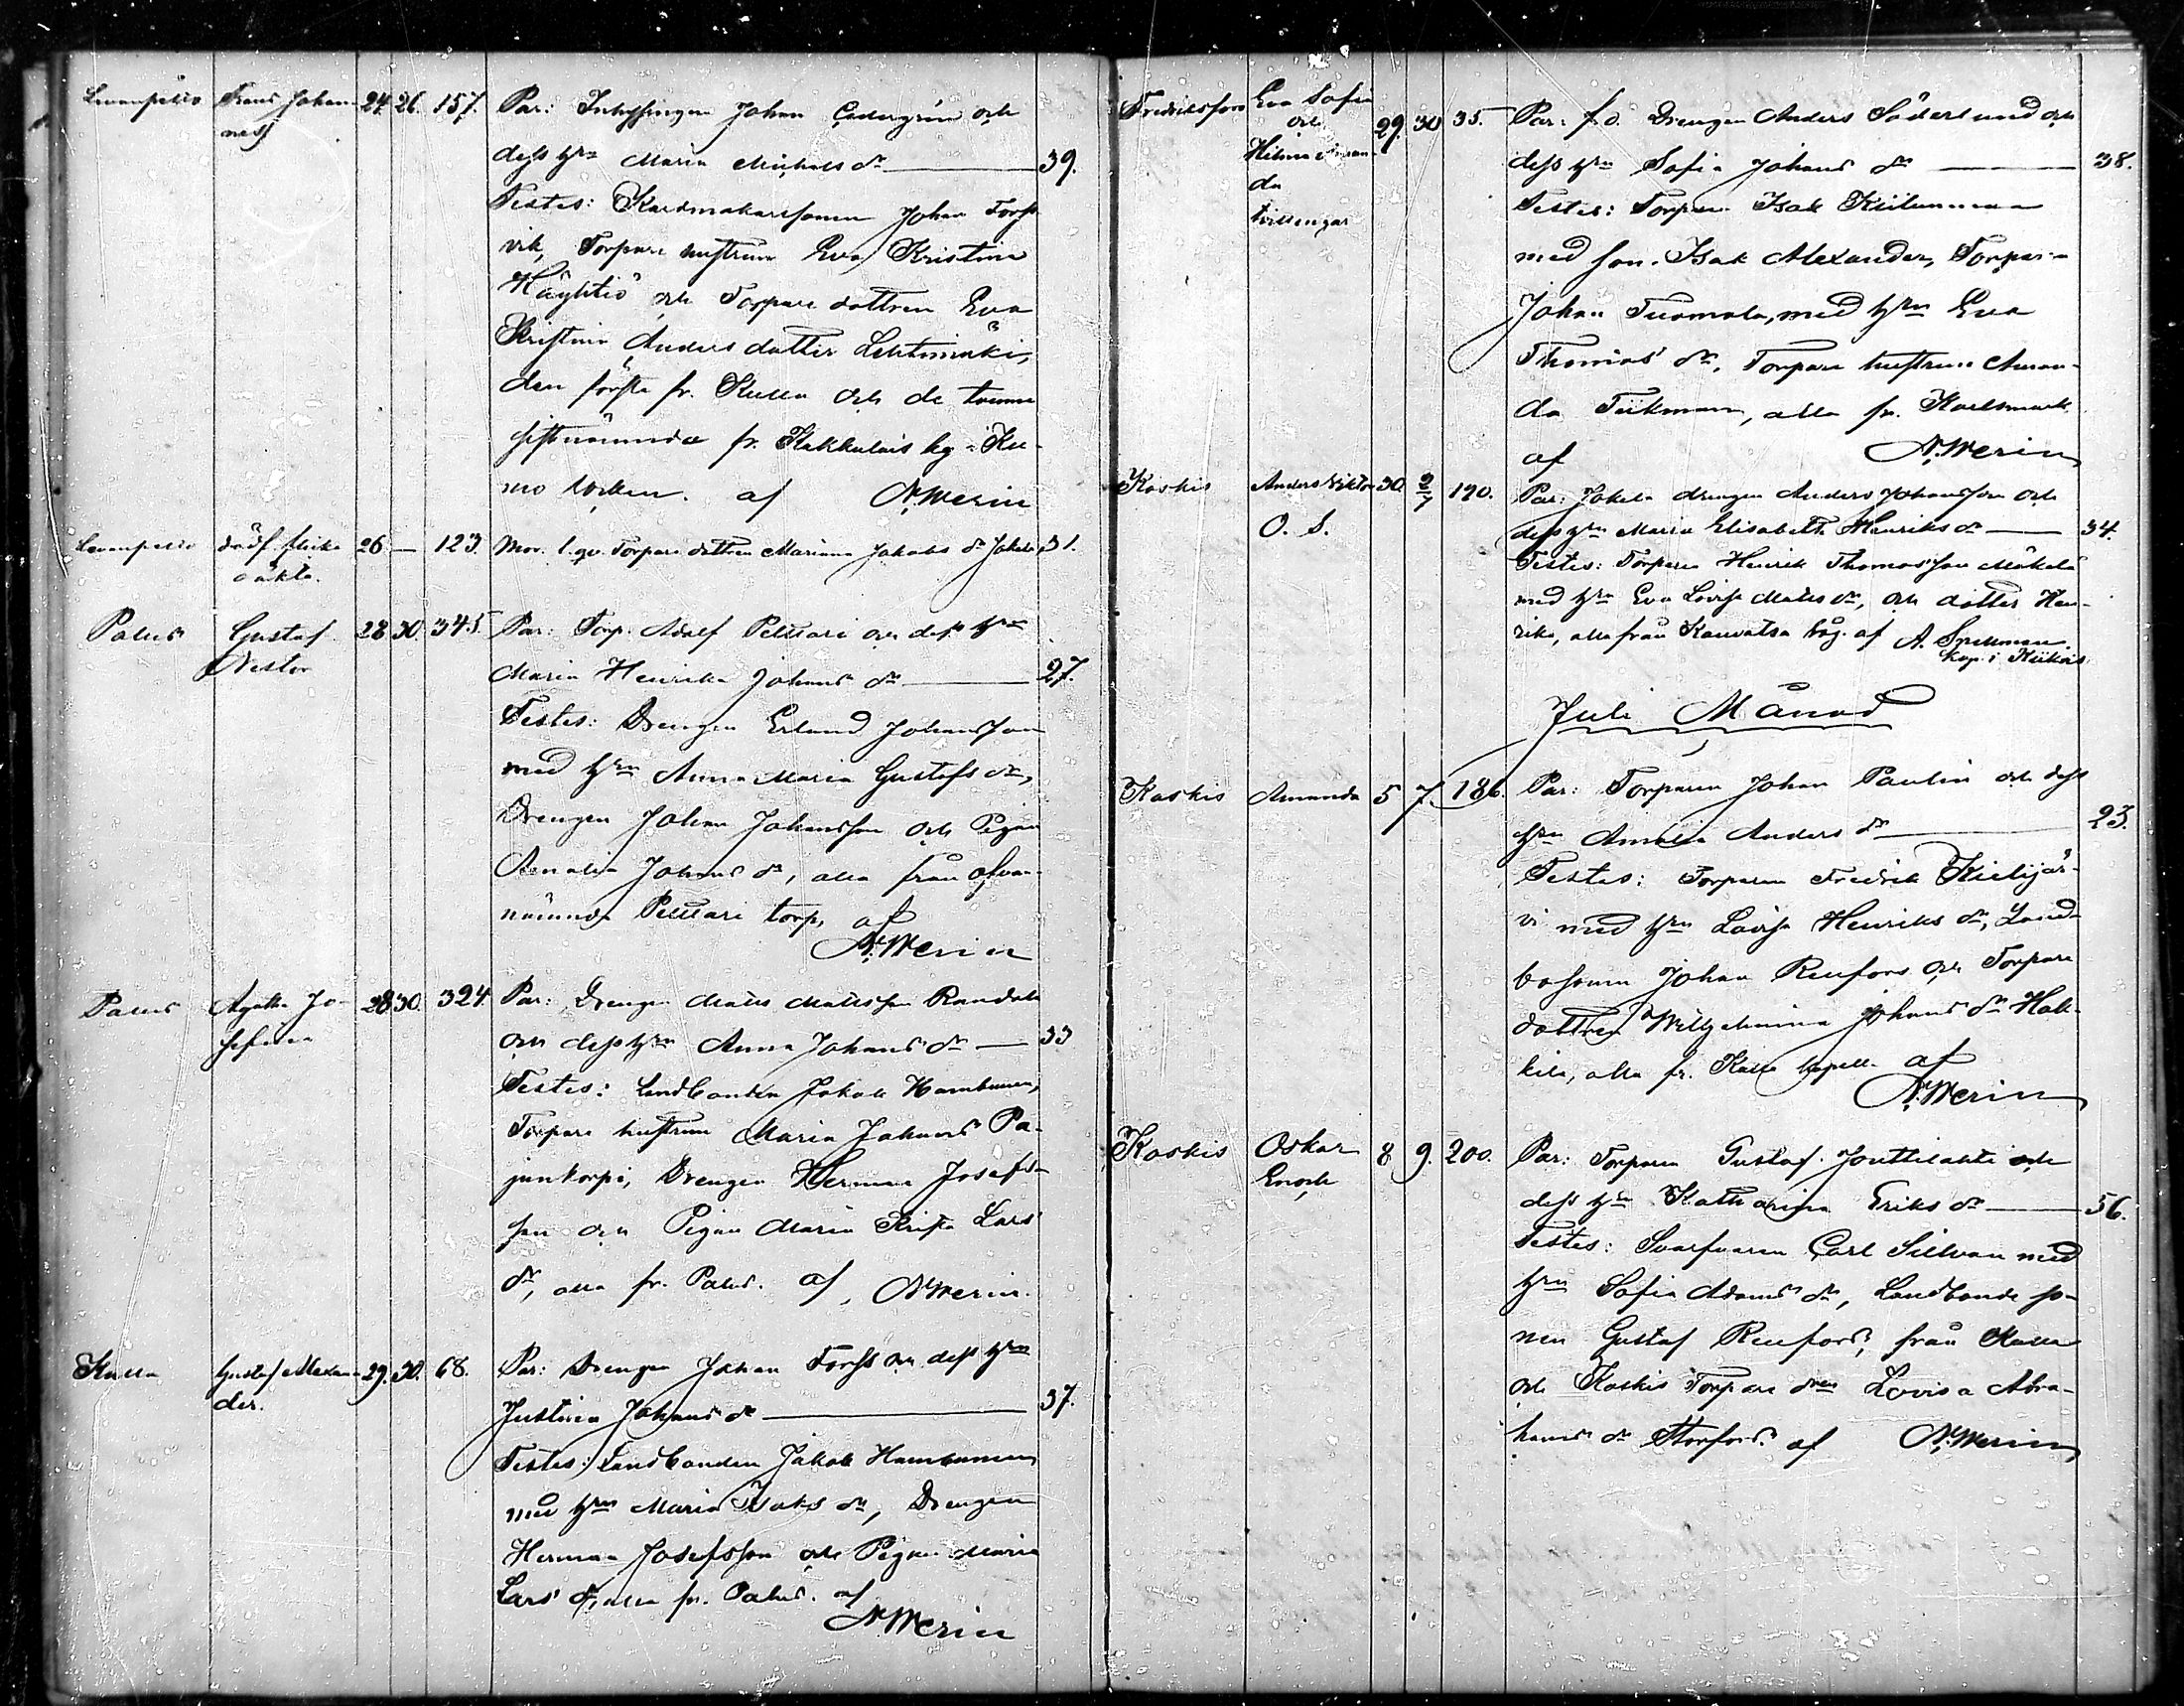 Levanpelto Frans Johan- 24. 26. 157. Par: Inhyssingen Johan Cedergrén och
nes
dess h:ru Maria Michels d:r 39.
Testes: Kardmakaresonen Johan Forss-
vik, Torpare hustrun Eva Kristina
Höyhtiö och Torpare dottren Eva
Kristina Anders dotter Lehtimäki,
den förste fr. Kulla och de tvenne
sistnämnda fr. Kakkulais by i Ku-
mo socken. af N. Merin
Levanpelto dödf. flicka 26 — 123. Mor. l. qv. Torpare dottren Mariana Jakobs d:r Jokela 31.
oäkta.
Palus Gustaf 28 30. 345. Par: Torp. Adolf Pelttari och dess h:ru
Nestor
Maria Henrika Johans d:r 27.
Testes: Drengen Erland Johansson
med h:ru Anna Maria Gustafs d:r,
Drengen Johan Johansson och Pigan
Amalia Johans d:r, alla från ofvan-
nämnda Pelttari torp, af
N. Merin
Palus Agatha Jo- 28 30. 324. Par: Drengen Matts Mattsson Randala
sefina
och dess h:ru Anna Johans d:r 33
Testes: Landbonden Jakob
Torpare hustrun Maria Johans Pa-
junkorpi, Drengen Herman Josefs-
son och Pigan Maria Krista Lars
d:r, alla fr. Palus. af N. Merin.
Kulla Gustaf Alexan- 29. 30. 68. Par: Drengen Johan Forss och dess h:ru
der.
Justina Johans d:r 37.
Testes: Landbonden Jakob
med h:ru Maria Isaks d:r, Drengen
Herman Josefsson och Pigan Maria
Lars d:r, alla fr. Palus. af
N. Merin
Fredriksfors Eva Sofia 29. 30 35. Par: f.d. Drengen Anders Söderlund och
och
Hilma Aman-
da
tvillingar
dess h:ru Sofia Johans d:r 38.
Testes: Torparen Isak
med son Isak Alexander, Torparen
Johan Tuomola, med h:ru Eva
Thomas d:r, Torpare hustrun Aman-
da Tiikman, alla fr. Karlsmark
af N. Merin
Koskis Anders Viktor 30. 2/7 190. Par: Jokela drengen Anders Johansson och
O. S.
dess h:ru Maria Elisabeth Henriks d:r 34.
Testes: Torparen Henrik Thomasson Mäkelä
med h:ru Eva Lovisa Matts d:r, och dotter Hen-
rika, alla från Kauvatsa förs. af A. Spellman
kap. i Kiikois.
Juli Månad
Koskis Amanda 5 7. 186. Par: Torparen Johan Paulin och dess
h:ru Amalia Anders d:r 23.
Testes: Torparen Fredrik Kielijär-
vi med h:ru Lovisa Henriks d:r, Land-
bosonen Johan Renfors och Torpare
dottren Wilhelmina Johans d:r Hak-
kila, alla fr. Kulla kapell. af
N. Merin
Koskis Oskar 8 9. 200. Par: Torparen Gustaf Jouttilahti och
Enock
dess h:ru Katharina Eriks d:r 56.
Testes: Svarfvaren Carl Sillman med
h:ru Sofia Adams d:r, Landbonde so-
nen Gustaf Renfors, från Kulla
och Koskis Torpare d:ren Lovisa Abra-
hams d:r Storfors. af N. Merin